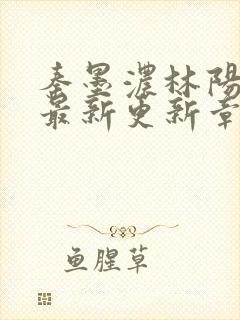 秦墨濃林陽
最新更新章
鱼腥草